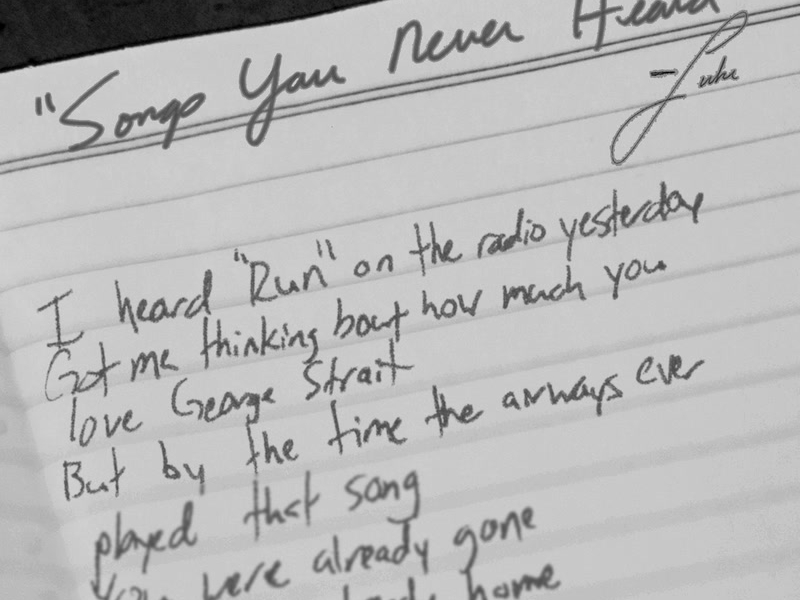 "Songs You Never Heard
- Luke
I heard "Run" on the radio yesterday
Got me thinking bout how much you
love George Strait
But by the time the airways ever
played that song
You were already gone
home